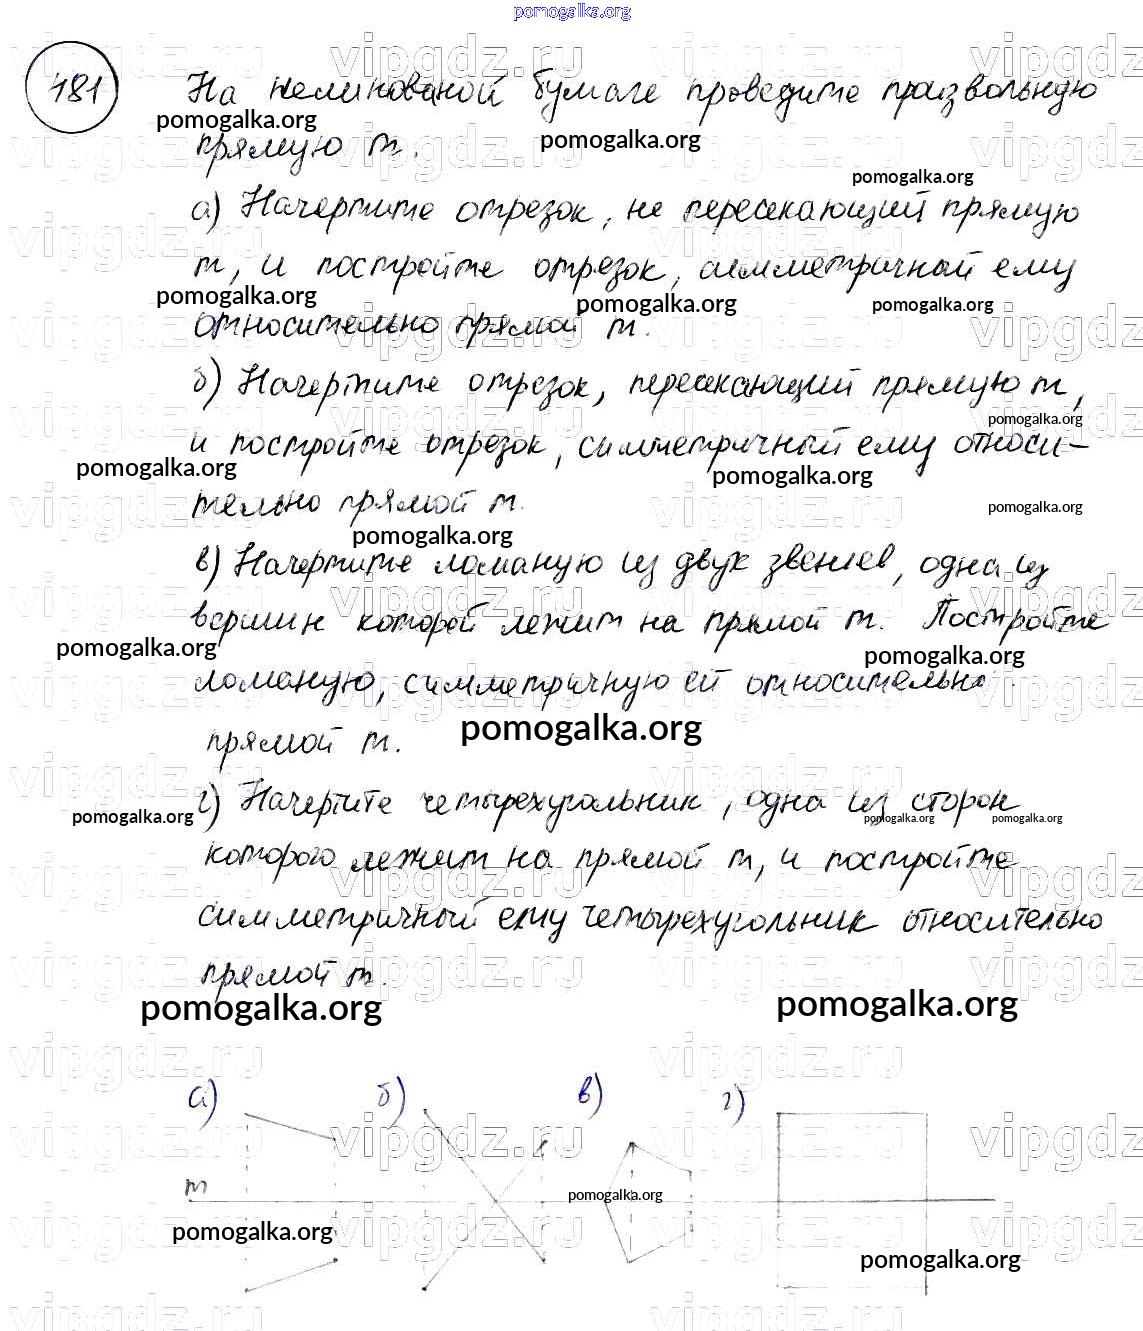 pomogalka.org
481 На нелинованой бумаге проведите произвольную
прямую m.
а) Начертите отрезок, не пересекающий прямую
m, и постройте отрезок, симметричный ему
относительно прямой m.
б) Начертите отрезок, пересекающий прямую m,
и постройте отрезок, симметричный ему относи-
тельно прямой m.
в) Начертите ломаную из двух звеньев, одна из
вершин которой лежит на прямой m. Постройте
ломаную, симметричную ей относительно
прямой m.
г) Начертите четырехугольник, одна из сторон
которого лежит на прямой m, и постройте
симметричный ему четырехугольник относительно
прямой m.
pomogalka.org pomogalka.org
vipgdz.ru
а) б) в) г)
m
pomogalka.org
pomogalka.org pomogalka.org